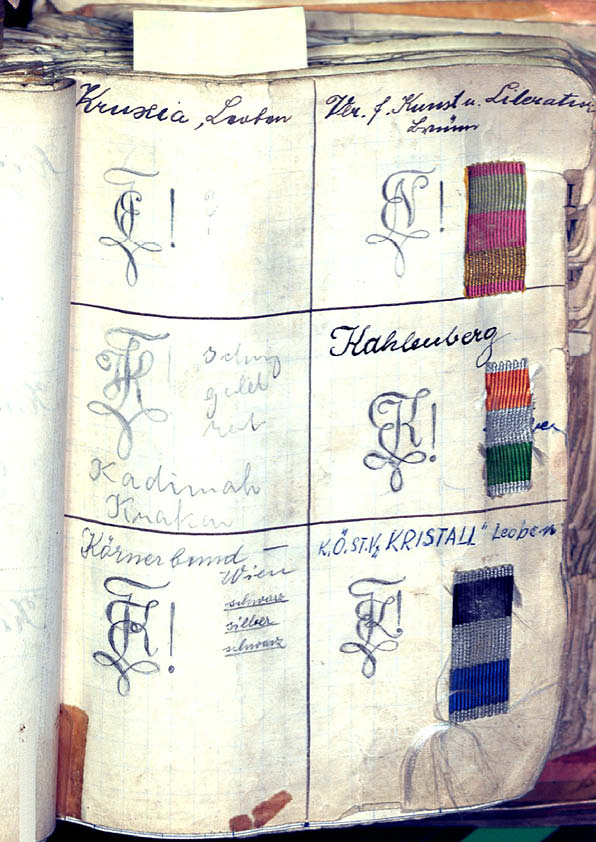 Kruxia, Leoben
?
Ver. f. Kunst u. Literatur
Brünn
gold
rot
Kadimah
Krakau
Kahlenberg
Körnerbund —
Wien
schwarz
silber
schwarz
K.Ö.ST.V. „KRISTALL" Leoben